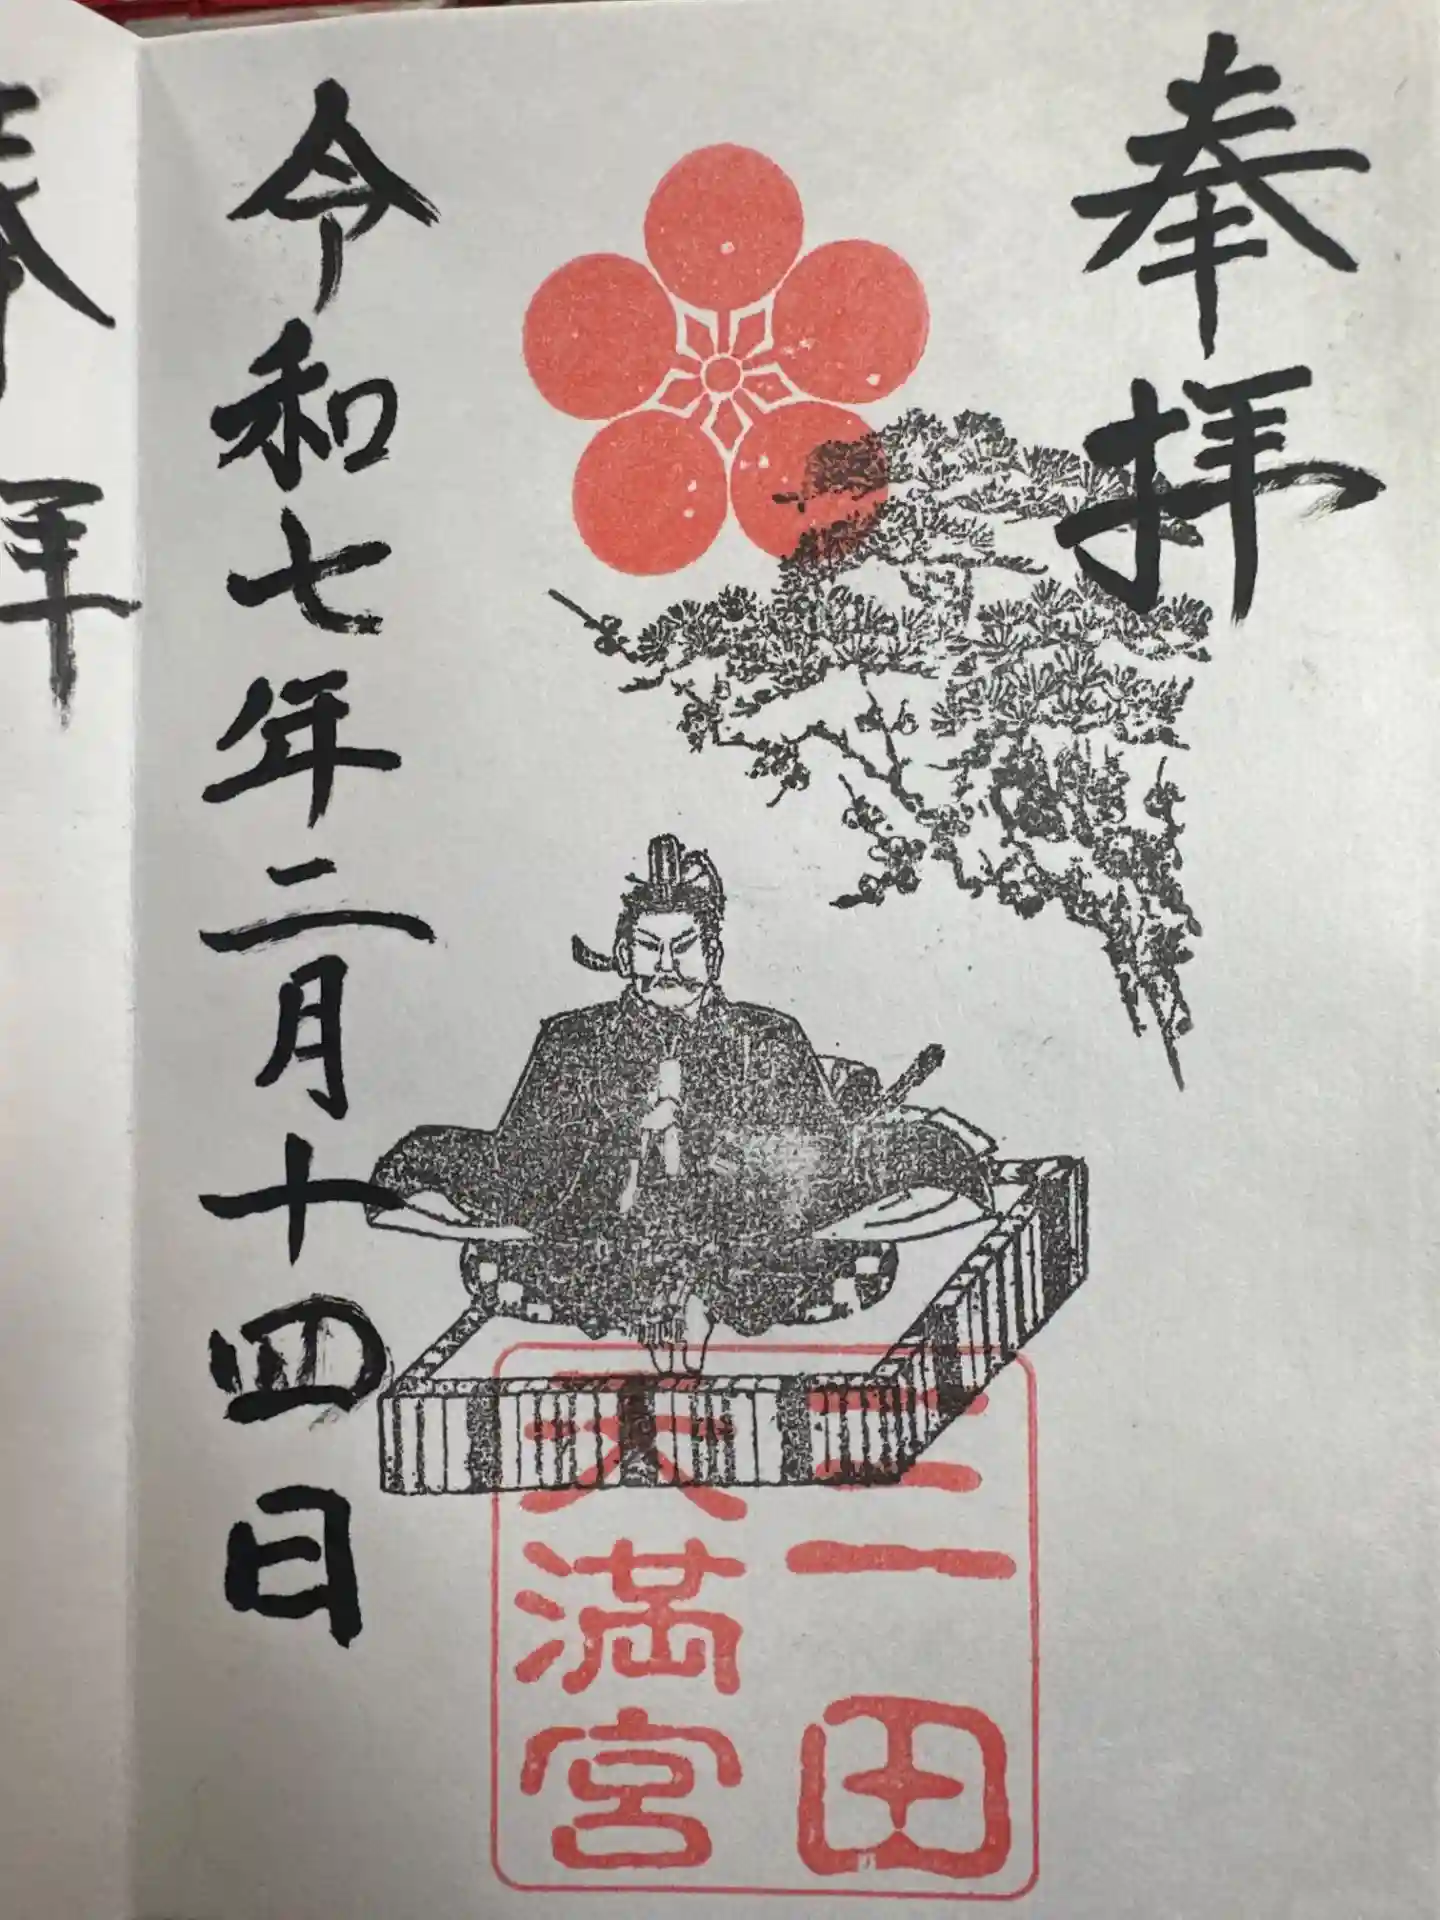 奉拝
三田
天満宮
令和七年二月十四日